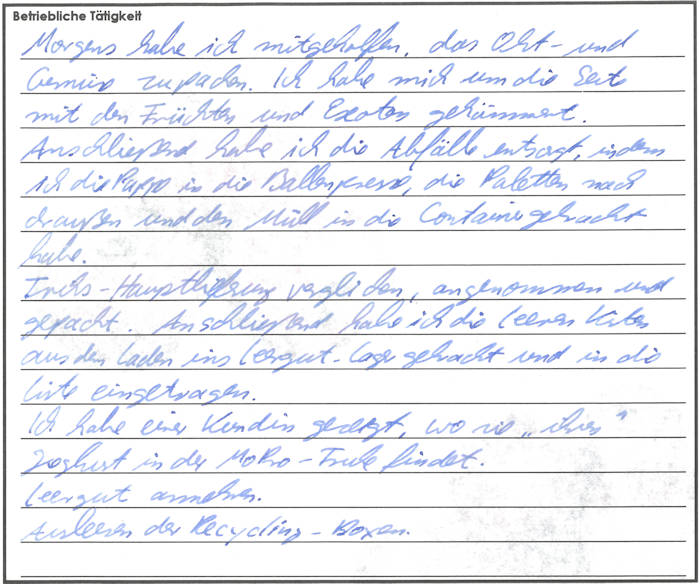 Betriebliche Tätigkeit
Morgens habe ich mitgeholfen, das Obst- und
Gemüse zupacken. Ich habe mich um die Seite
mit den Früchten und Exoten gekümmert.
Anschließend habe ich die Abfälle entsorgt, indem
ich die Pappe in die Ballenpresse, die Paletten nach
draußen und den Müll in die Container gebracht
habe.
Irchs-Hauptlieferung verglichen, angenommen und
gepackt. Anschließend habe ich die leeren Kisten
aus den Laden ins Leergut-Lager gebracht und in die
Liste eingetragen.
Ich habe einer Kundin gezeigt, wo sie „ihren"
Joghurt in der MoPro-Truhe findet.
Leergut annehmen.
Ausleeren der Recycling-Boxen.